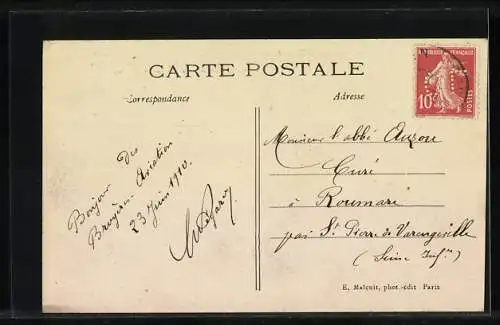 CARTE POSTALE
Correspondance
Adresse
REPUBLIQUE FRANÇAISE
10
POSTES
Bonjour des
Bruyères Aviation
23 Juin 1910
Monsieur l'abbé Auzou
Curé
à Roumare
par St Pierre de Varengeville
(Seine Infre)
E. Malcuit, phot.-édit Paris